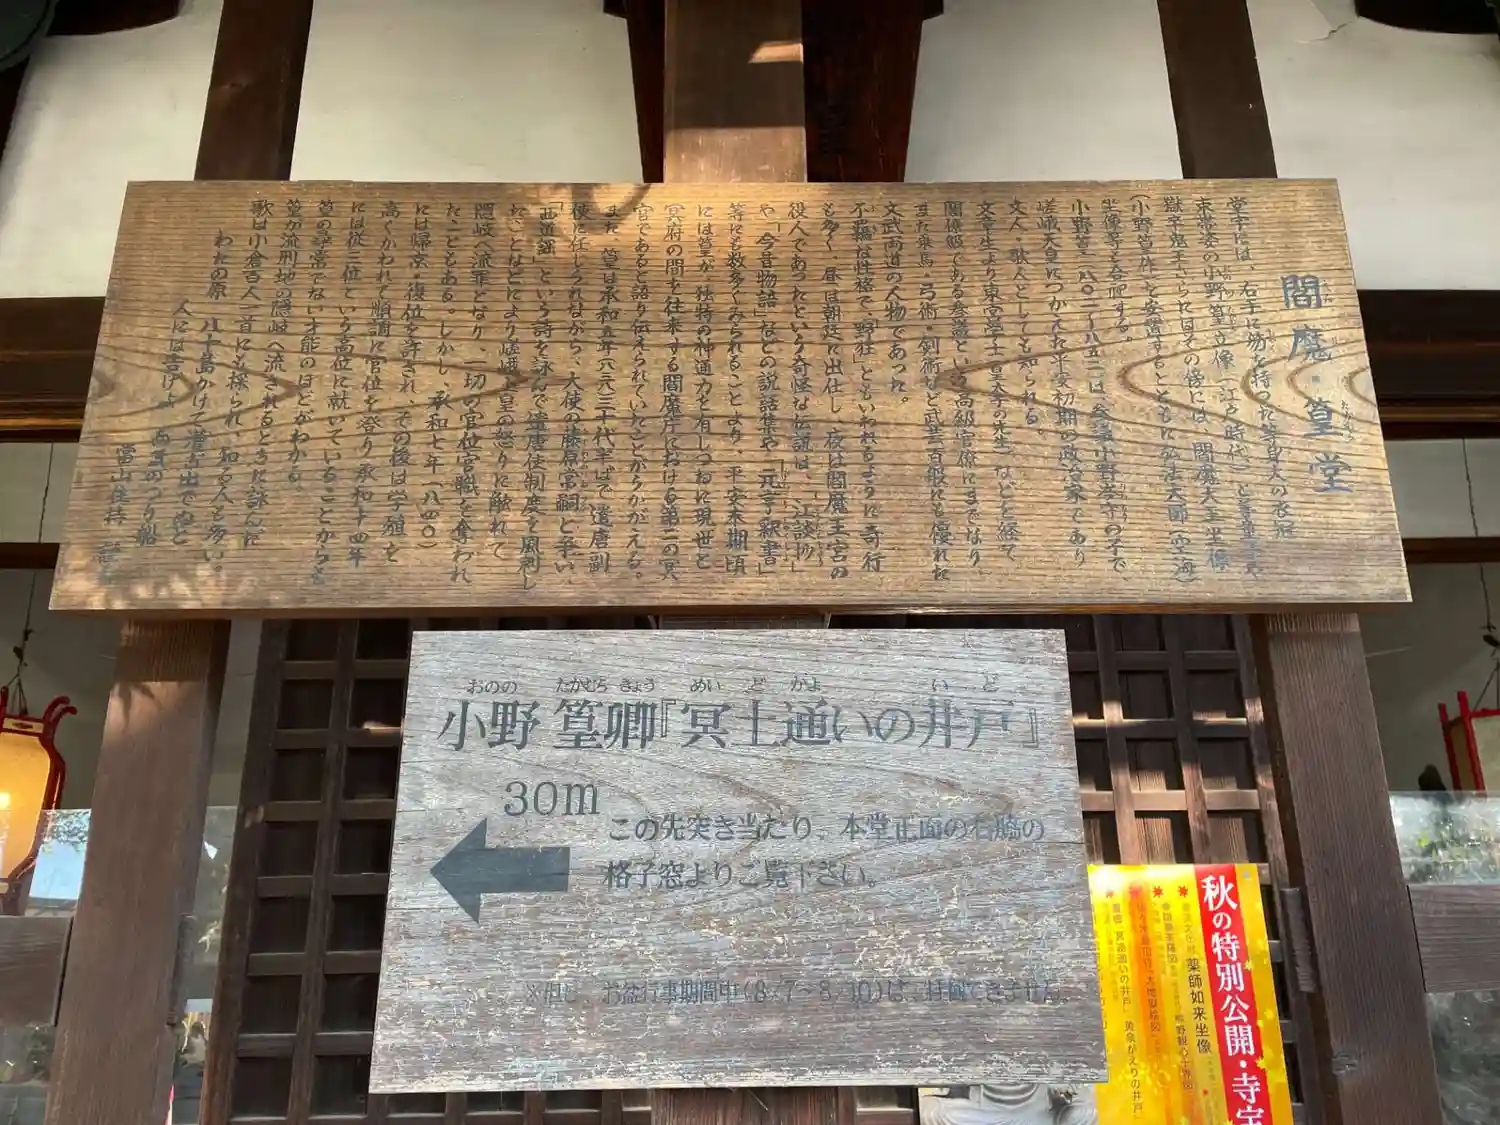 閻魔・篁堂
堂中には、右手に笏を持った等身大の衣冠
束帯姿の小野篁立像（江戸時代）と善童子
獄卒鬼王さらにはその傍には、閻魔大王坐像
（小野篁作）を安置するとともに弘法大師（空海）
坐像等も合祀する。
小野篁・八〇二〜八五二は、参議小野岑守の子で、
嵯峨天皇につかえた平安初期の政治家であり
文人・歌人としても知られる。
文章生より東宮学士（皇太子の先生）などを経て
閣僚級である参議という高級官僚にまでなり、
また乗馬・弓術・剣術など武芸百般にも優れた
文武両道の人物であった。
不羈な性格で、「野狂」ともいわれるように奇行
も多く、昼は朝廷に出仕し、夜は閻魔王宮の
役人であったという奇怪な伝説は、「江談抄」
や「今昔物語」などの説話集や、「元亨釈書」
等にも数多くみられることより、平安末期頃
には篁が、独特の神通力を有しつねに現世と
冥府の間を往来する閻魔庁における第二の冥
官であると語り伝えられていたことがうかがえる。
また、篁は承和五年（八三八）三十代半ばで遣唐副
使に任じられながら、大使の藤原常嗣と争い、
「西道謡」という詩を詠んで遣唐使制度を風刺し
たことなどにより嵯峨上皇の怒りに触れて
隠岐へ流罪となり、一切の官位官職を奪われ
たこともある。しかし、承和七年（八四〇）
には帰京・復位を許され、その後は学殖を
高くかわれて順調に官位を登り承和十四年
には従三位という高位に就いていることからも
篁の尋常でない才能のほどがわかる。
篁が流刑地の隠岐へ流されるときに詠んだ
歌は小倉百人一首にも採られ、知る人も多い。
わたの原 八十島かけて漕ぎ出でぬと
人には告げよ あまのつり船
当山住持
おのの たかむら きょう めい ど がよ い ど
小野 篁卿『冥土通いの井戸』
30m
この先突き当たり、本堂正面の右脇の
格子窓よりご覧下さい。
※但し、お盆行事期間中(8/7〜8/10)は、拝観できません。
秋の特別公開・寺宝
薬師如来坐像